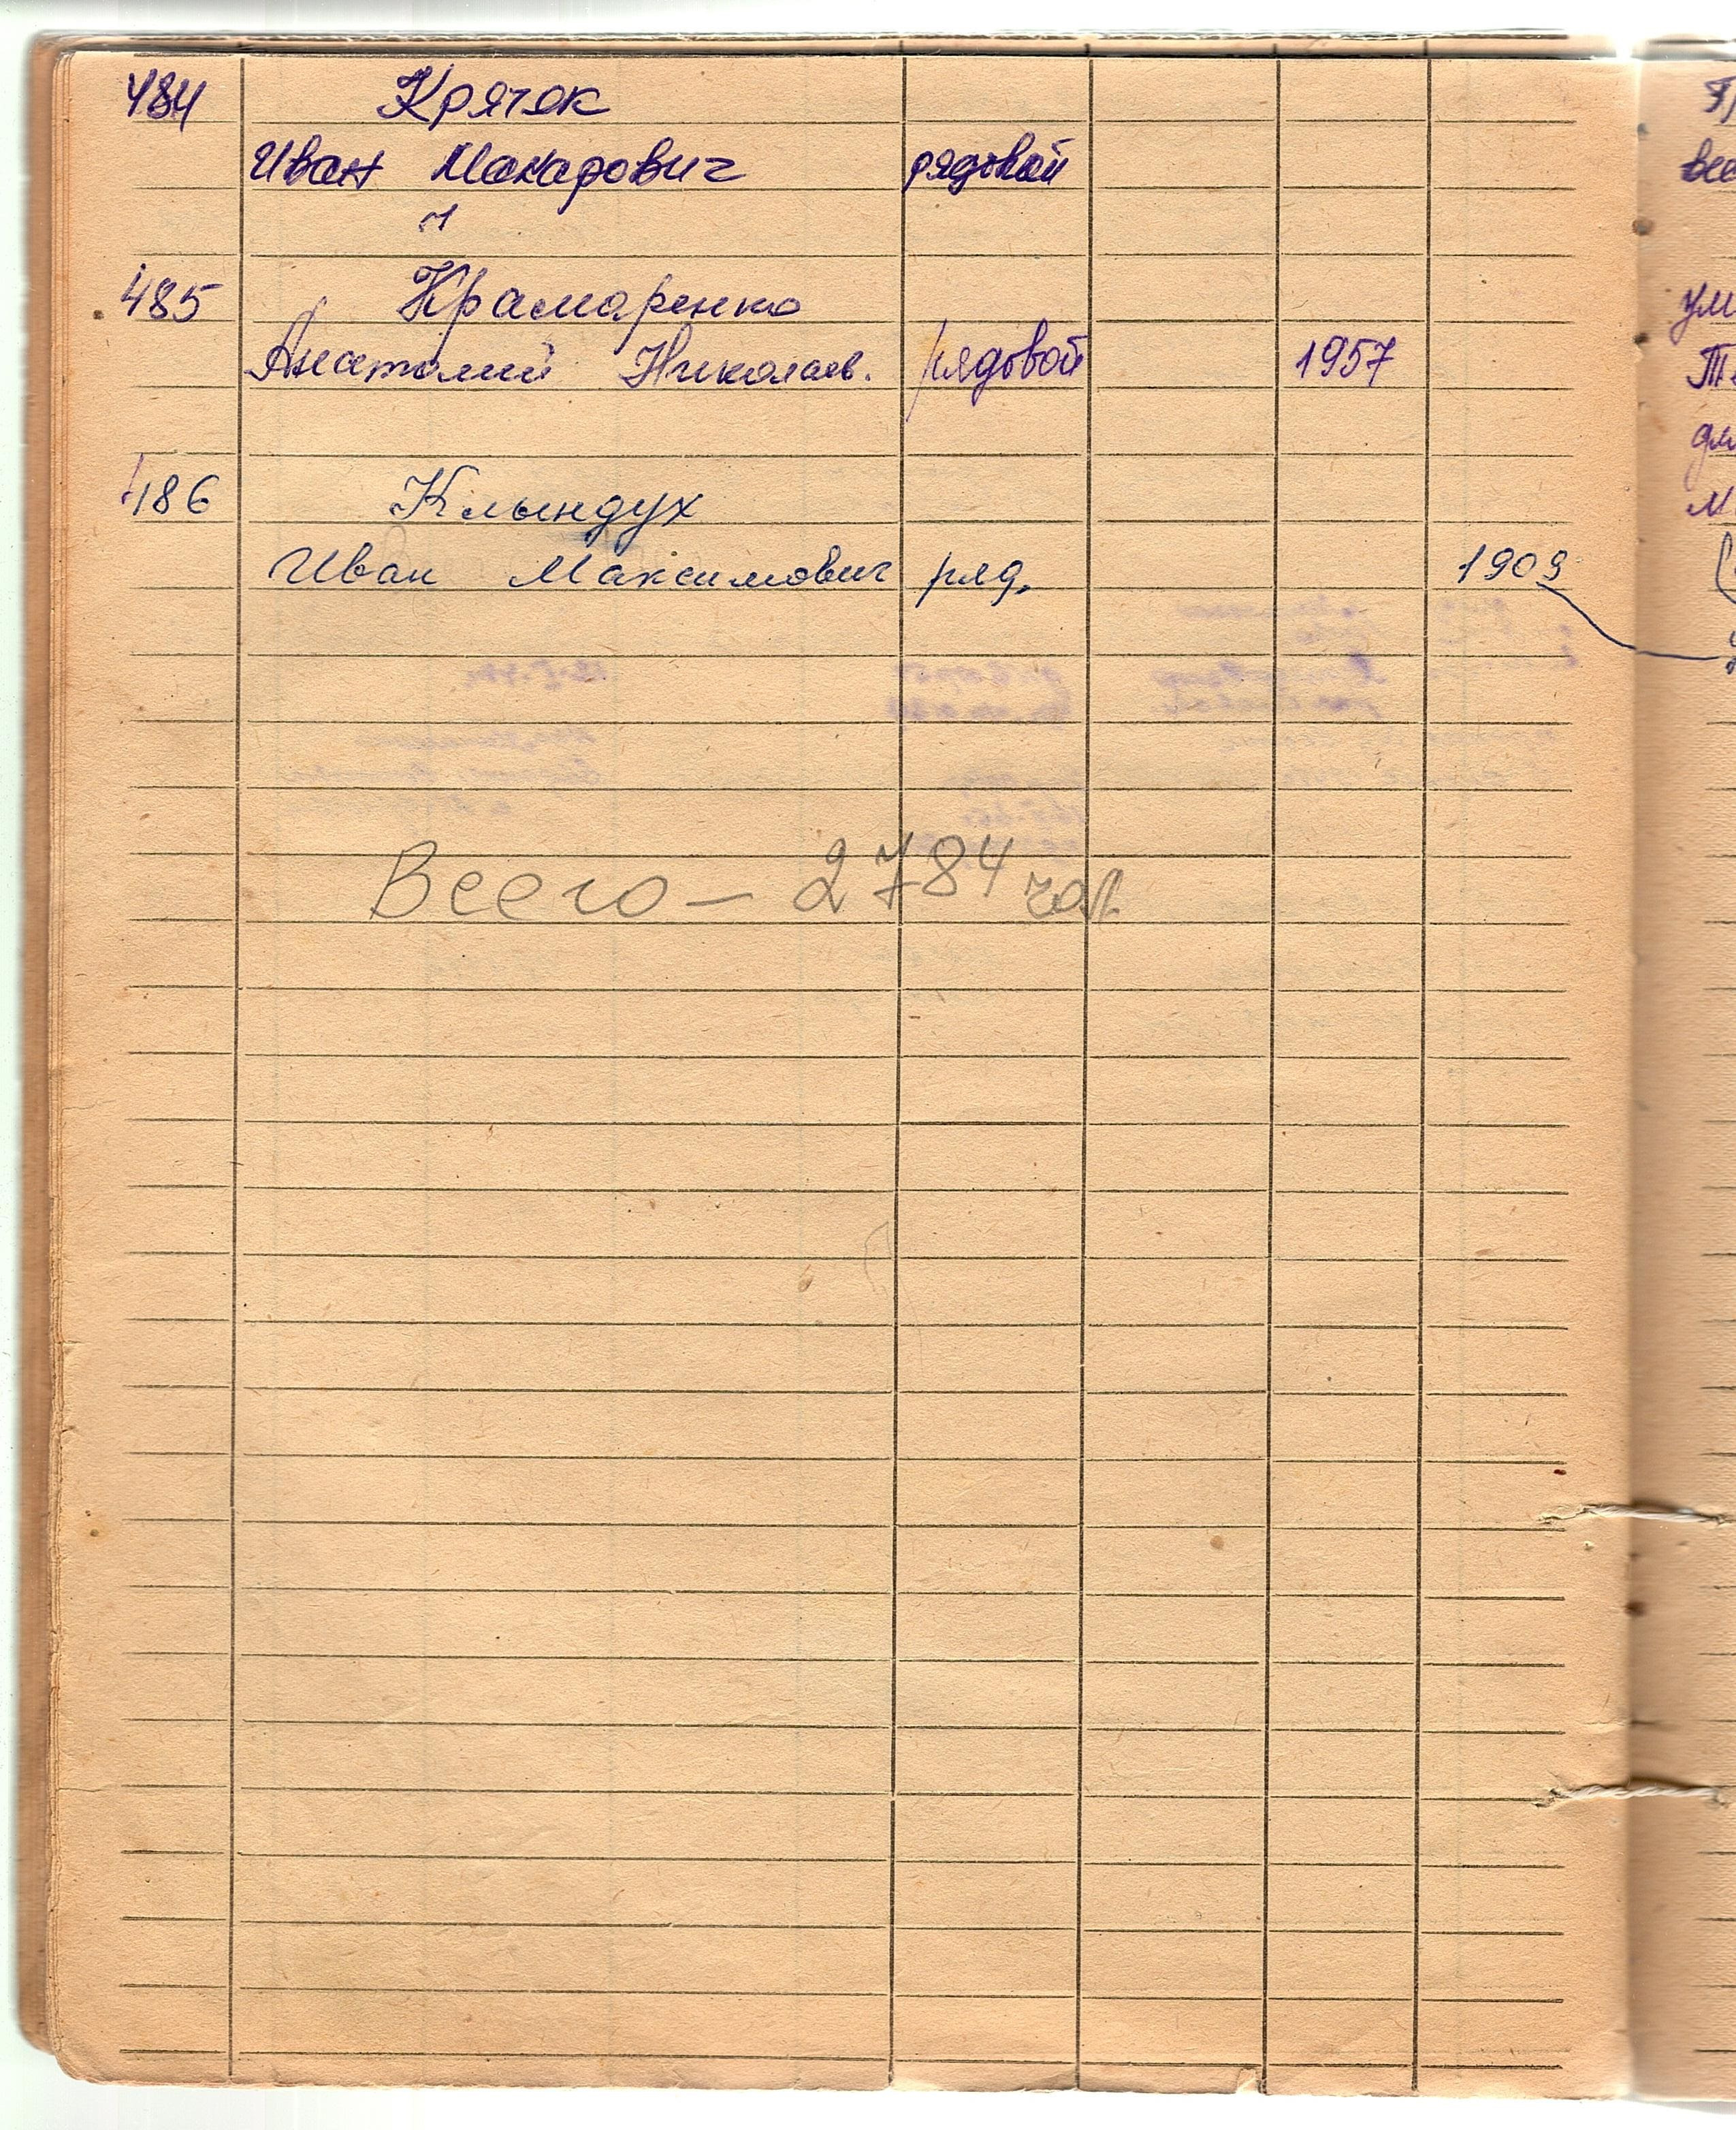 484 Крячок
Иван Макарович рядовой
485 Крамаренко
Анатолий Николаев. рядовой 1957
486 Клындух
Иван Максимович ряд. 1909
Всего – 2784 чол